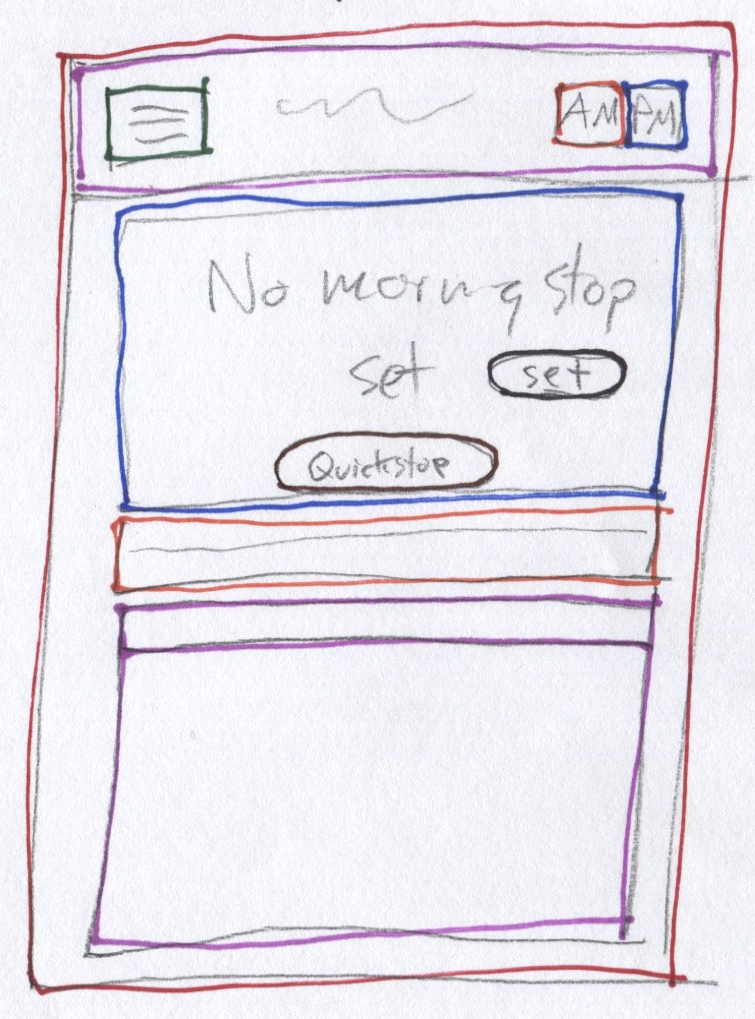 AM PM
No mornng stop
set set
Quickstop